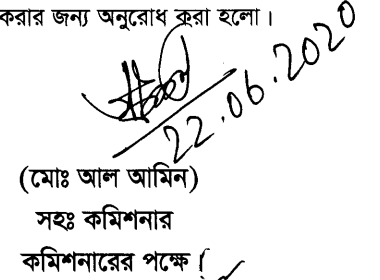 করার জন্য অনুরোধ করা হলো।
22.06.2020
(মোঃ আল আমিন)
সহঃ কমিশনার
কমিশনারের পক্ষে